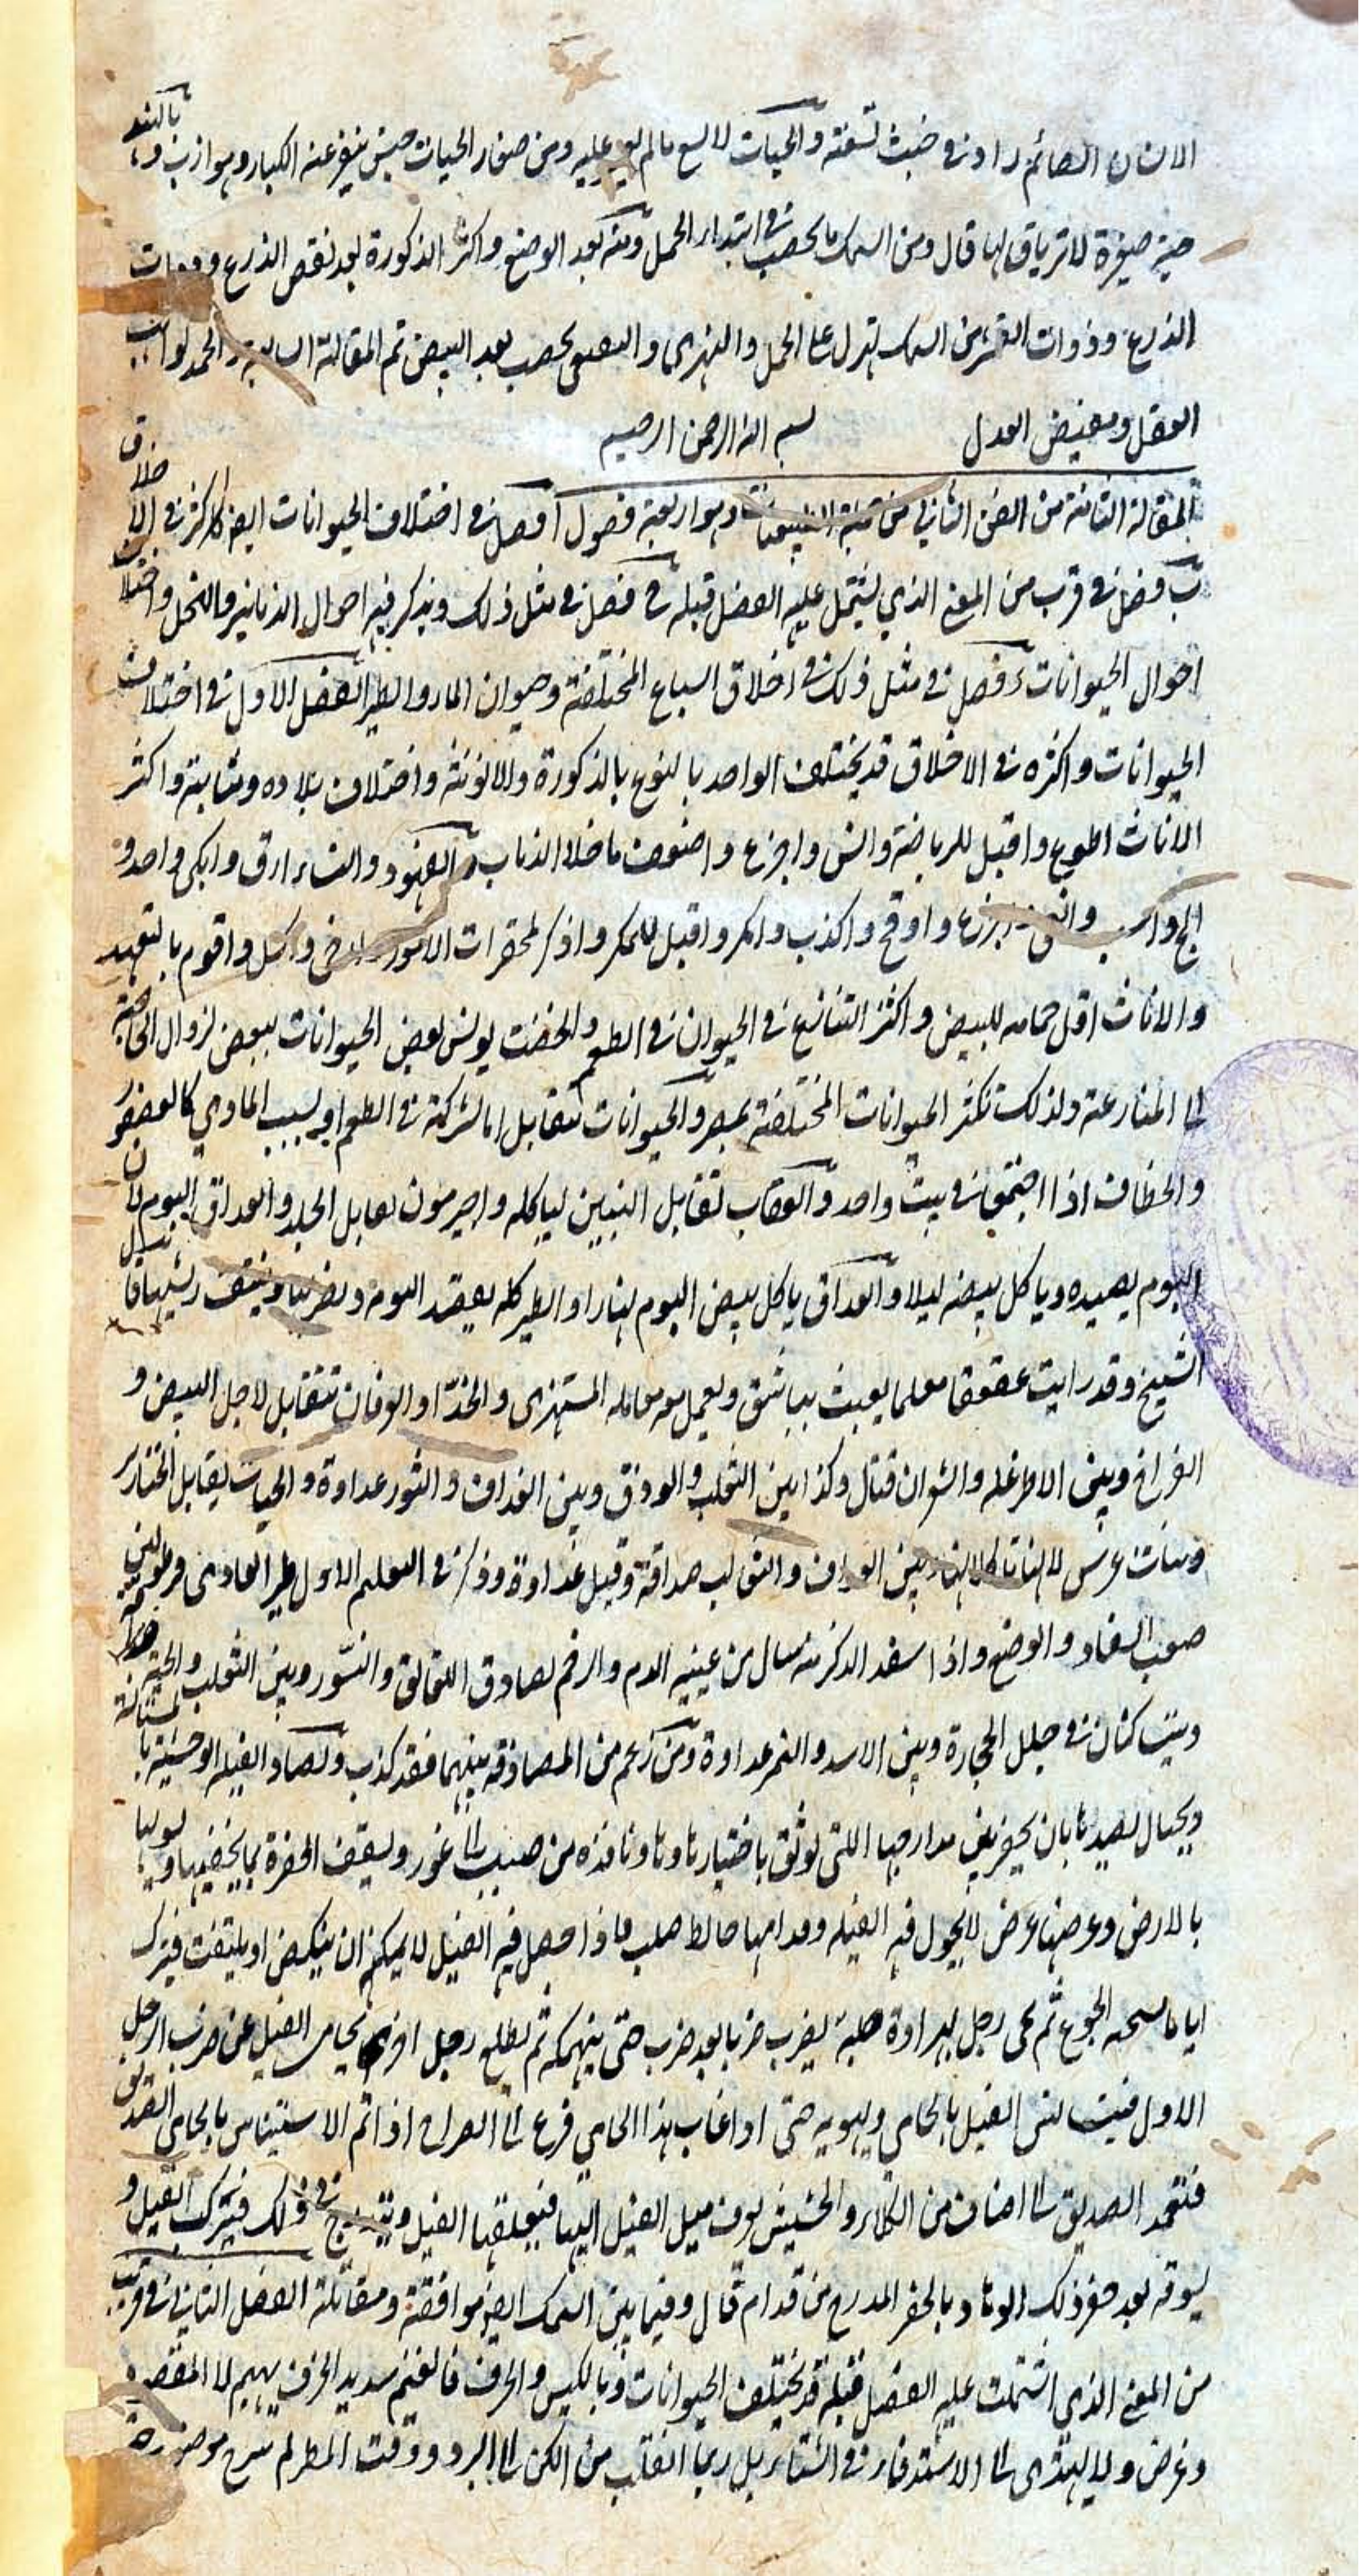 الانسان الصائم زاد في خبث لسعته والحيات لا لسع ما لم عليه ومن صغار الحيات جنس ينفر عنه الكبار وهو ازب و بالهند
حية صغيرة لا ترياق لها قال ومن السمك ما يخصب في ابتداء الحمل ومنه بعد الوضع واكثر الذكورة بعد نقص الزرع وذوات
الزرع وذوات القشر من السمك تهزل على الحمل والنهرى والبعض يخصب بعد البيض تم المقالة السابعة والحمد لواهب
العقل ومفيض العدل بسم الله الرحمن الرحيم
المقالة الثامنة من الفن الثامن من جملة الطبيعيات وهو اربعة فصول ا فصل في اختلاف الحيوانات ايضا واكثره في الاخلاق
ب فصل في قرب من المعنى الذي يشتمل عليه الفصل قبله ج فصل في مثل ذلك ويذكر فيه احوال الزنابير والنحل واختلاف
احوال الحيوانات د فصل في مثل ذلك في اخلاق السباع المختلفة وحيوان الماء والطير الفصل الاول في اختلاف
الحيوانات واكثره في الاخلاق قد يختلف الواحد بالنوع بالذكورة والانوثة واختلاف بلاده ومشابته واكثر
الاناث اطوع واقبل للرياضة وانس واجزع واضعف ما خلا الذئاب والفهود والنساء ارق وابكى واحد و
الج و واجزع واوقح واكذب وامكر واقبل للمكر واذكر لمحقرات الامور وارخى واكسل واقوم بالتعهد
والاناث اقل حمامه للبيض واكثر التنازع في الحيوان في الطعم والخضت يونس بعض الحيوانات ببعض لزوال الحاجة
الى المنازعة ولذلك تكثر الحيوانات المختلفة بمصر والحيوانات تتقابل اما لشركة في الطعم او لسبب الماوي كالعصفور
والخطاف اذا اجتمعا في بيت واحد والعقاب تقابل التنين لياكله واجرسون يقابل الجلد والغداف البوم لان
البوم يصيده وياكل بيضه ليلا والغداف ياكل بيض البوم نهارا والطير كله يقصد البومة ويضربها وينتف ريشها قال
الشيخ وقد رايت عقعقا معلما يعبث بباشق ويعمل معه معاملة المستهزى والحداء والورشان تتقابل لاجل البيض و
الفراخ وبين الاطرغله والشوان قتال وكذا بين الثعلب والورق وبين الغداف والثور عداوة والحيات يقابل الخنازير
وبنات عرس لانها تاكلها بين الغداف والثعالب صداقة وقيل عداوة وذكر في التعليم الاول طير
صعب السفاد والوضع واذا سفد الذكر منه سال من عينيه الدم والرخم يصادق اللقالق والنسور وبين الثعلب والحية
وبيت كنان في خلل الحجارة وبين الاسد والنمر عداوة ومن زعم من المصادقة بينهما فقد كذب وتصاد الفيلة الوحشية
ويحتال لصيدها بان يحفر بعض مدارجها اللتي يوثق باختيارها ونافذه من صبب الى غور ويسقف الحفرة بما يخفيها ويسويها
بالارض وعرضها عرض لا يجول فيه الفيله وقدامها حائط صلب فاذا حصل فيه الفيل لا يمكنه ان ينكص او يلتفت فيترك
اياما الجوع ثم يجى رجل بهراوة صلبة يضرب ضربا بعد ضرب حتى ينهكه ثم يطلع رجل اخر يحامى الفيل عن ضرب الرجل
الاول فيستانس الفيل بالحامى ويهويه حتى اذا غاب هذا الحامى فزع الى الصراخ اذا تم الاستيناس بالحامى الصديق
فيعمد الصديق الى اصناف من الكلاء والحشيش يعرف ميل الفيل اليها فيعلفها الفيل ويتدرج في ذلك فيركب الفيل و
يسوقه بعد حفر ذلك الوهاد بالحفر المدرج من قدام قال وفيما بين السمك ايضا موافقة ومقاتلة الفصل الثاني في قرب
من المعنى الذي اشتملت عليه الفصل قبله قد يختلف الحيوانات في الكيس والخرق فالغنم شديد الخرق يهيم لا الى مقصد
وغرض ولا يهتدى الى الاستدفاء في الشتاء بل ربما انقلب من الكن الى البرد ووقت المطر لم تبرح موضع